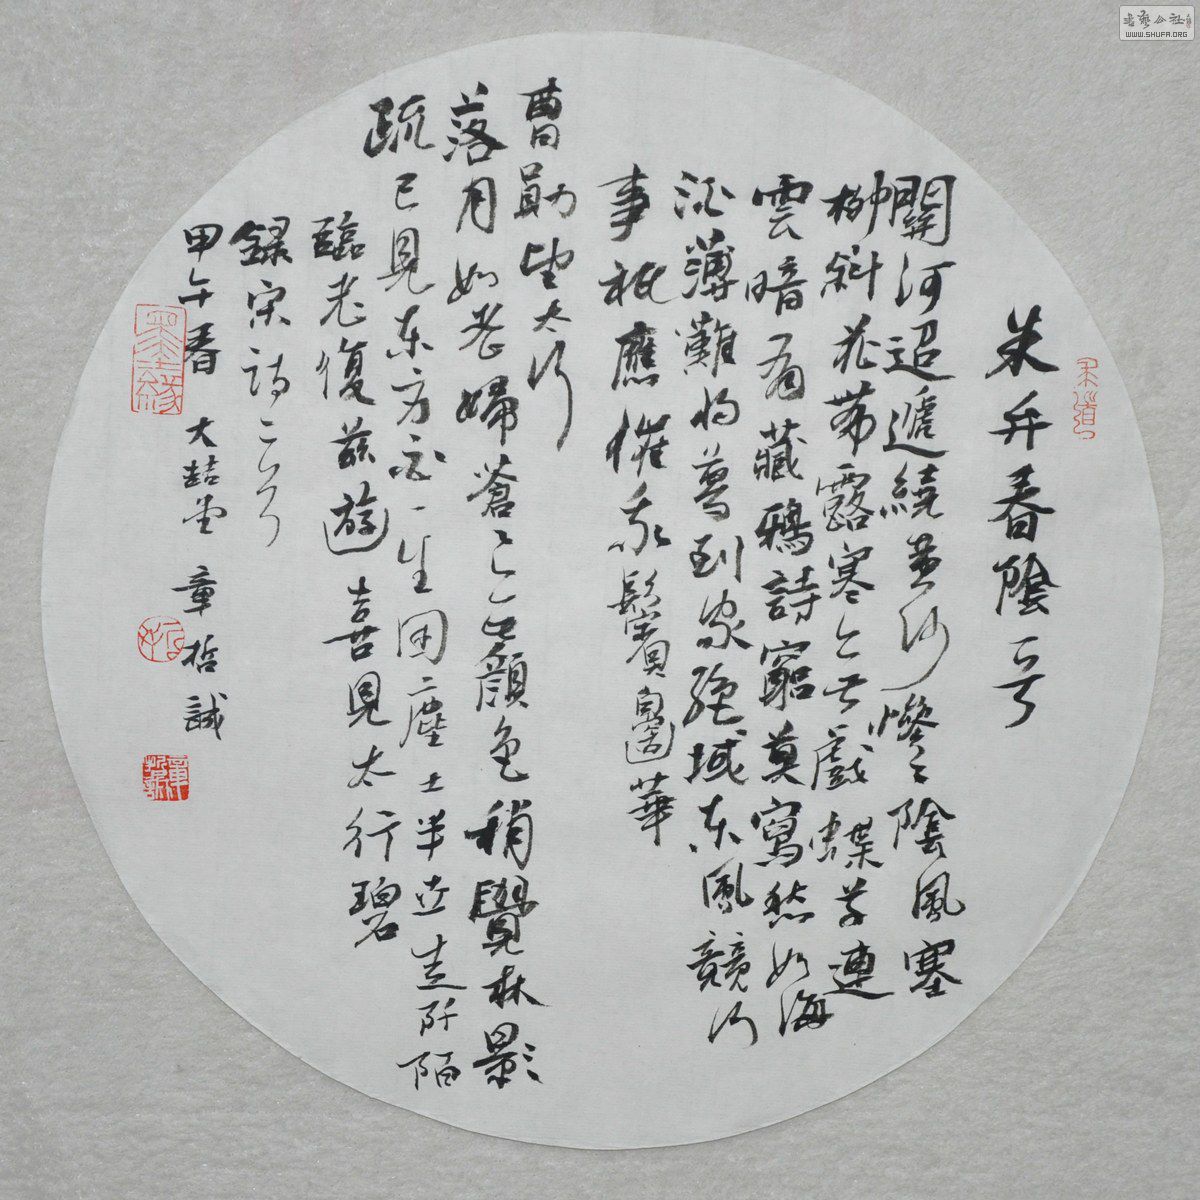 朱弁春陰一首
關河迢遞繞黃沙慘慘陰風塞
柳斜花帶露寒無戲蝶草連
雲暗有藏鴉詩窮莫寫愁如海
酒薄難將夢到家絕域東風競何
事秖應催我鬢邊華
曹勛望太行
落月如老婦蒼蒼無顏色稍覺林影
疏已見東方白一生困塵土半世走阡陌
臨老復茲遊喜見太行碧
錄宋詩二首
甲午春 大喆堂 章哲誠
墨緣
書藝公社
WWW.SHUFA.ORG